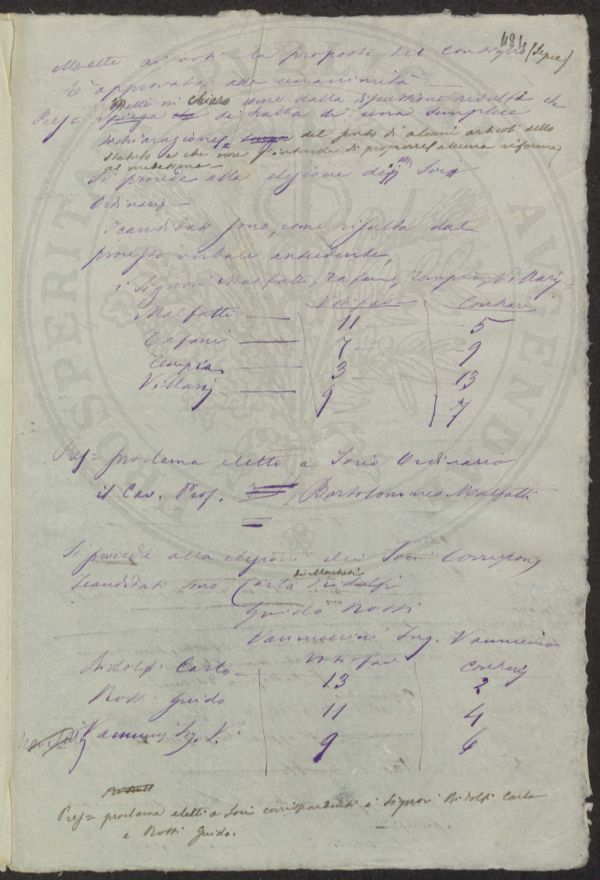 484
Mette ai voti la proposta del Consiglio (Sepee)
E' approvata alla unanimità
Pres= Spiega Mette in chiaro come dalla discussione risulta che
si tratta di una semplice
dichiarazione del punto di alcuni articoli dello
Statuto e che non s'intende di proporre alcuna riforma
al medesimo
Si procede alla elezione dei Soci
Ordinari
I candidati sono, come risulta dal
processo verbale antecedente,
i Signori Malfatti, Tafani, Tempia, Villari
Voti fav. Contrari
Malfatti — 11 5
Tafani — 7 9
Tempia — 3 13
Villari — 9 7
Pres= proclama eletto a Socio Ordinario
il Cav. Prof. Bartolommeo Malfatti
Si procede alla elezione dei Soci Corrispon
I candidati sono Carlo dei Marchesi Ridolfi
Guido Rossi
Vannuccini Ing. Vannuccio
Voti fav. Contrari
Ridolfi Carlo 13 2
Rossi Guido 11 4
Vannucc Ing. V. 9 6
Pres= proclama eletti a Soci corrispondenti i Signori Ridolfi Carlo
e Rossi Guido.